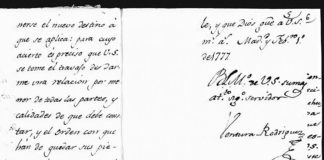 nerse el nuevo destino á
que se aplica: para cuyo
acierto es preciso que V.S.
se tome el trabajo de dar
me una relacion por me
nor de todas las partes, y
calidades de que debe cons
tar, y el orden con que
han de quedar sus pie-
te, y que Dios gue á V.S.
m.s a.s Mad.d y
de 1777
BLM de VS su mas
at.to seg.o servidor
Ventura Rodriguez